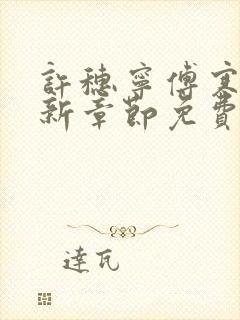 許穗寧傅寒
新章節免費
達瓦